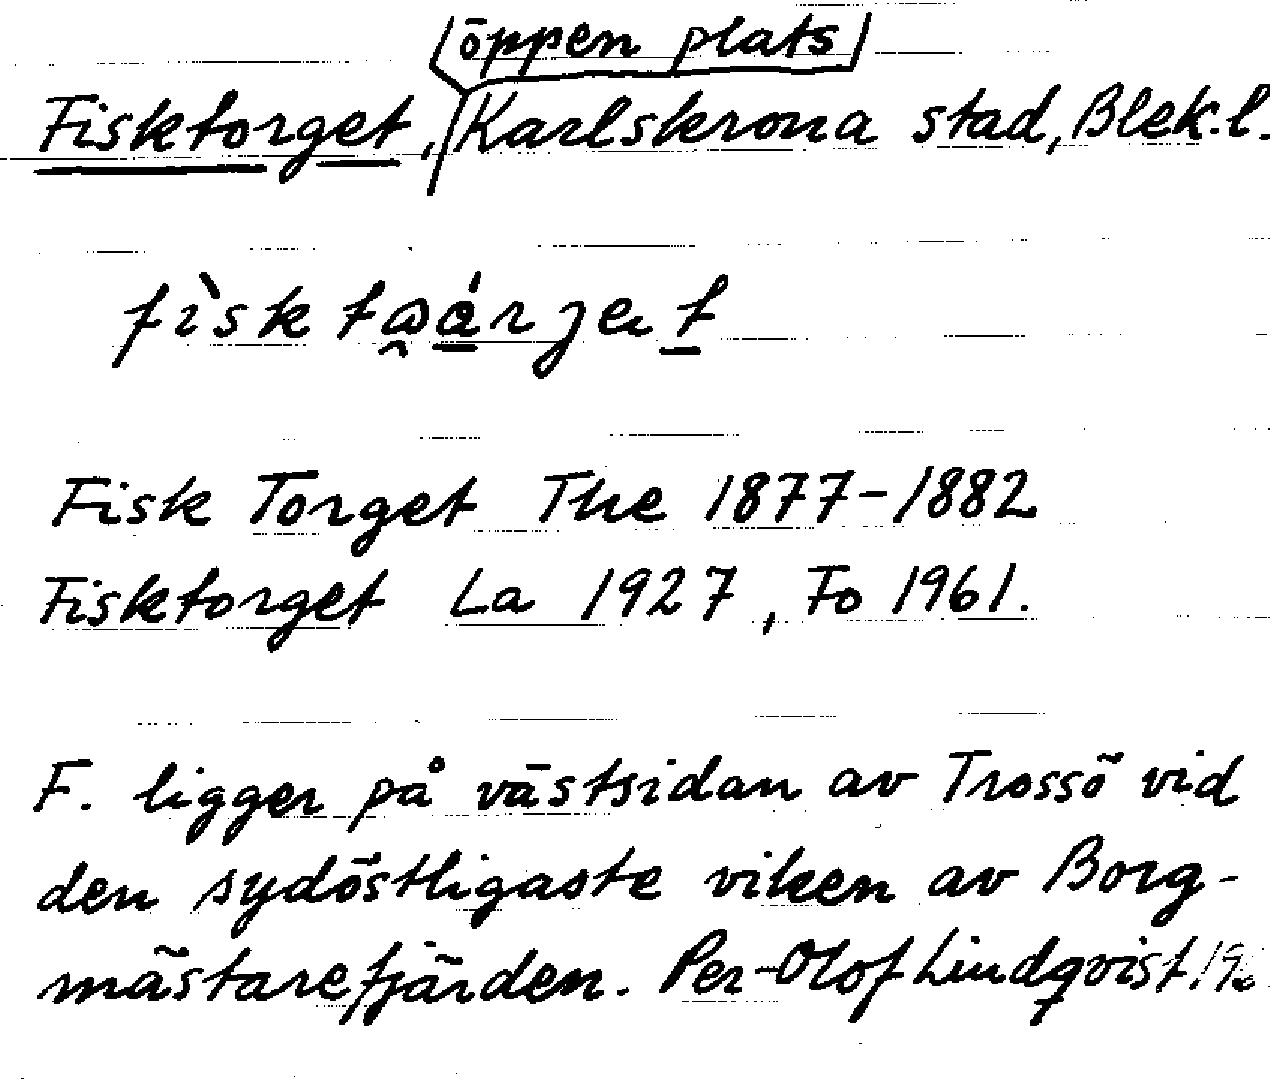 öppen plats
Fisktorget, Karlskrona stad, Blek.l.
Fisk Torget The 1877-1882
Fisktorget La 1927, Fo 1961.
F. ligger på västsidan av Trossö vid
den sydöstligaste viken av Borg-
mästarefjärden. Per-Olof Lindqvist.